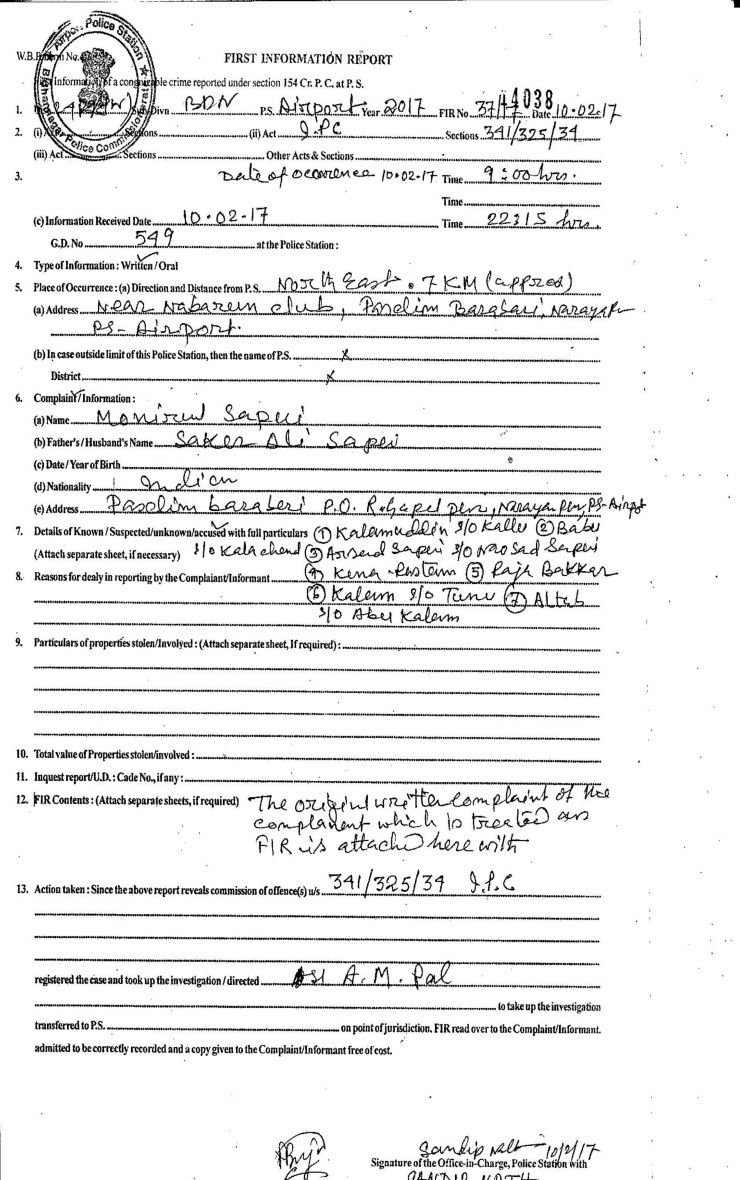 Airport Police Station
Bidhannagar Police Commissionerate
W.B. Form No.
FIRST INFORMATION REPORT
Information of a cognizable crime reported under section 154 Cr. P. C. at P. S.
1. Divn BDN P.S. Airport Year 2017 FIR No 37/17 4038 Date 10-02-17
2. (i) Act Sections (ii) Act I.P.C Sections 341/325/34
(iii) Act Sections Other Acts & Sections
3. Date of occurence 10.02-17 Time 9:00 hrs.
Time
(c) Information Received Date 10.02-17 Time 22:15 hrs.
G.D. No 549 at the Police Station :
4. Type of Information : Written / Oral
5. Place of Occurrence : (a) Direction and Distance from P.S. North East . 7 KM (approd)
(a) Address Near Nabarun club, Pasclim Baraberi, Narayanpur
PS- Airport.
(b) In case outside limit of this Police Station, then the name of P.S. X
District X
6. Complaint / Information :
(a) Name Monirul Sapui
(b) Father's / Husband's Name Saker Ali Sapui
(c) Date / Year of Birth
(d) Nationality Indian
(e) Address Pasclim baraberi P.O. R. Gopalpur, Narayanpur, PS- Airport
7. Details of Known / Suspected/unknown/accused with full particulars (1) Kalamuddin S/o Kallu (2) Babu
(Attach separate sheet, if necessary) S/o Kalachand (3) Arsad Sapui S/o Nao Sad Sapui
8. Reasons for dealy in reporting by the Complaiant/Informant (4) Kena Rustam (5) Raja Bakkar
(6) Kalam S/o Tunu (7) Altab
S/o Abu Kalam
9. Particulars of properties stolen/Involyed : (Attach separate sheet, If required) :
10. Total value of Properties stolen/involved :
11. Inquest report/U.D. : Cade No., if any :
12. FIR Contents : (Attach separate sheets, if required) The original written complaint of the
complanent which is treated as
FIR is attached here with
13. Action taken : Since the above report reveals commission of offence(s) u/s 341/325/34 I.P.C
registered the case and took up the investigation / directed ASI A. M. Pal
to take up the investigation
transferred to P.S. on point of jurisdiction. FIR read over to the Complaint/Informant.
admitted to be correctly recorded and a copy given to the Complaint/Informant free of cost.
Sandip Nath 10/2/17
Signature of the Office-in-Charge, Police Station with
SANDIP NATH